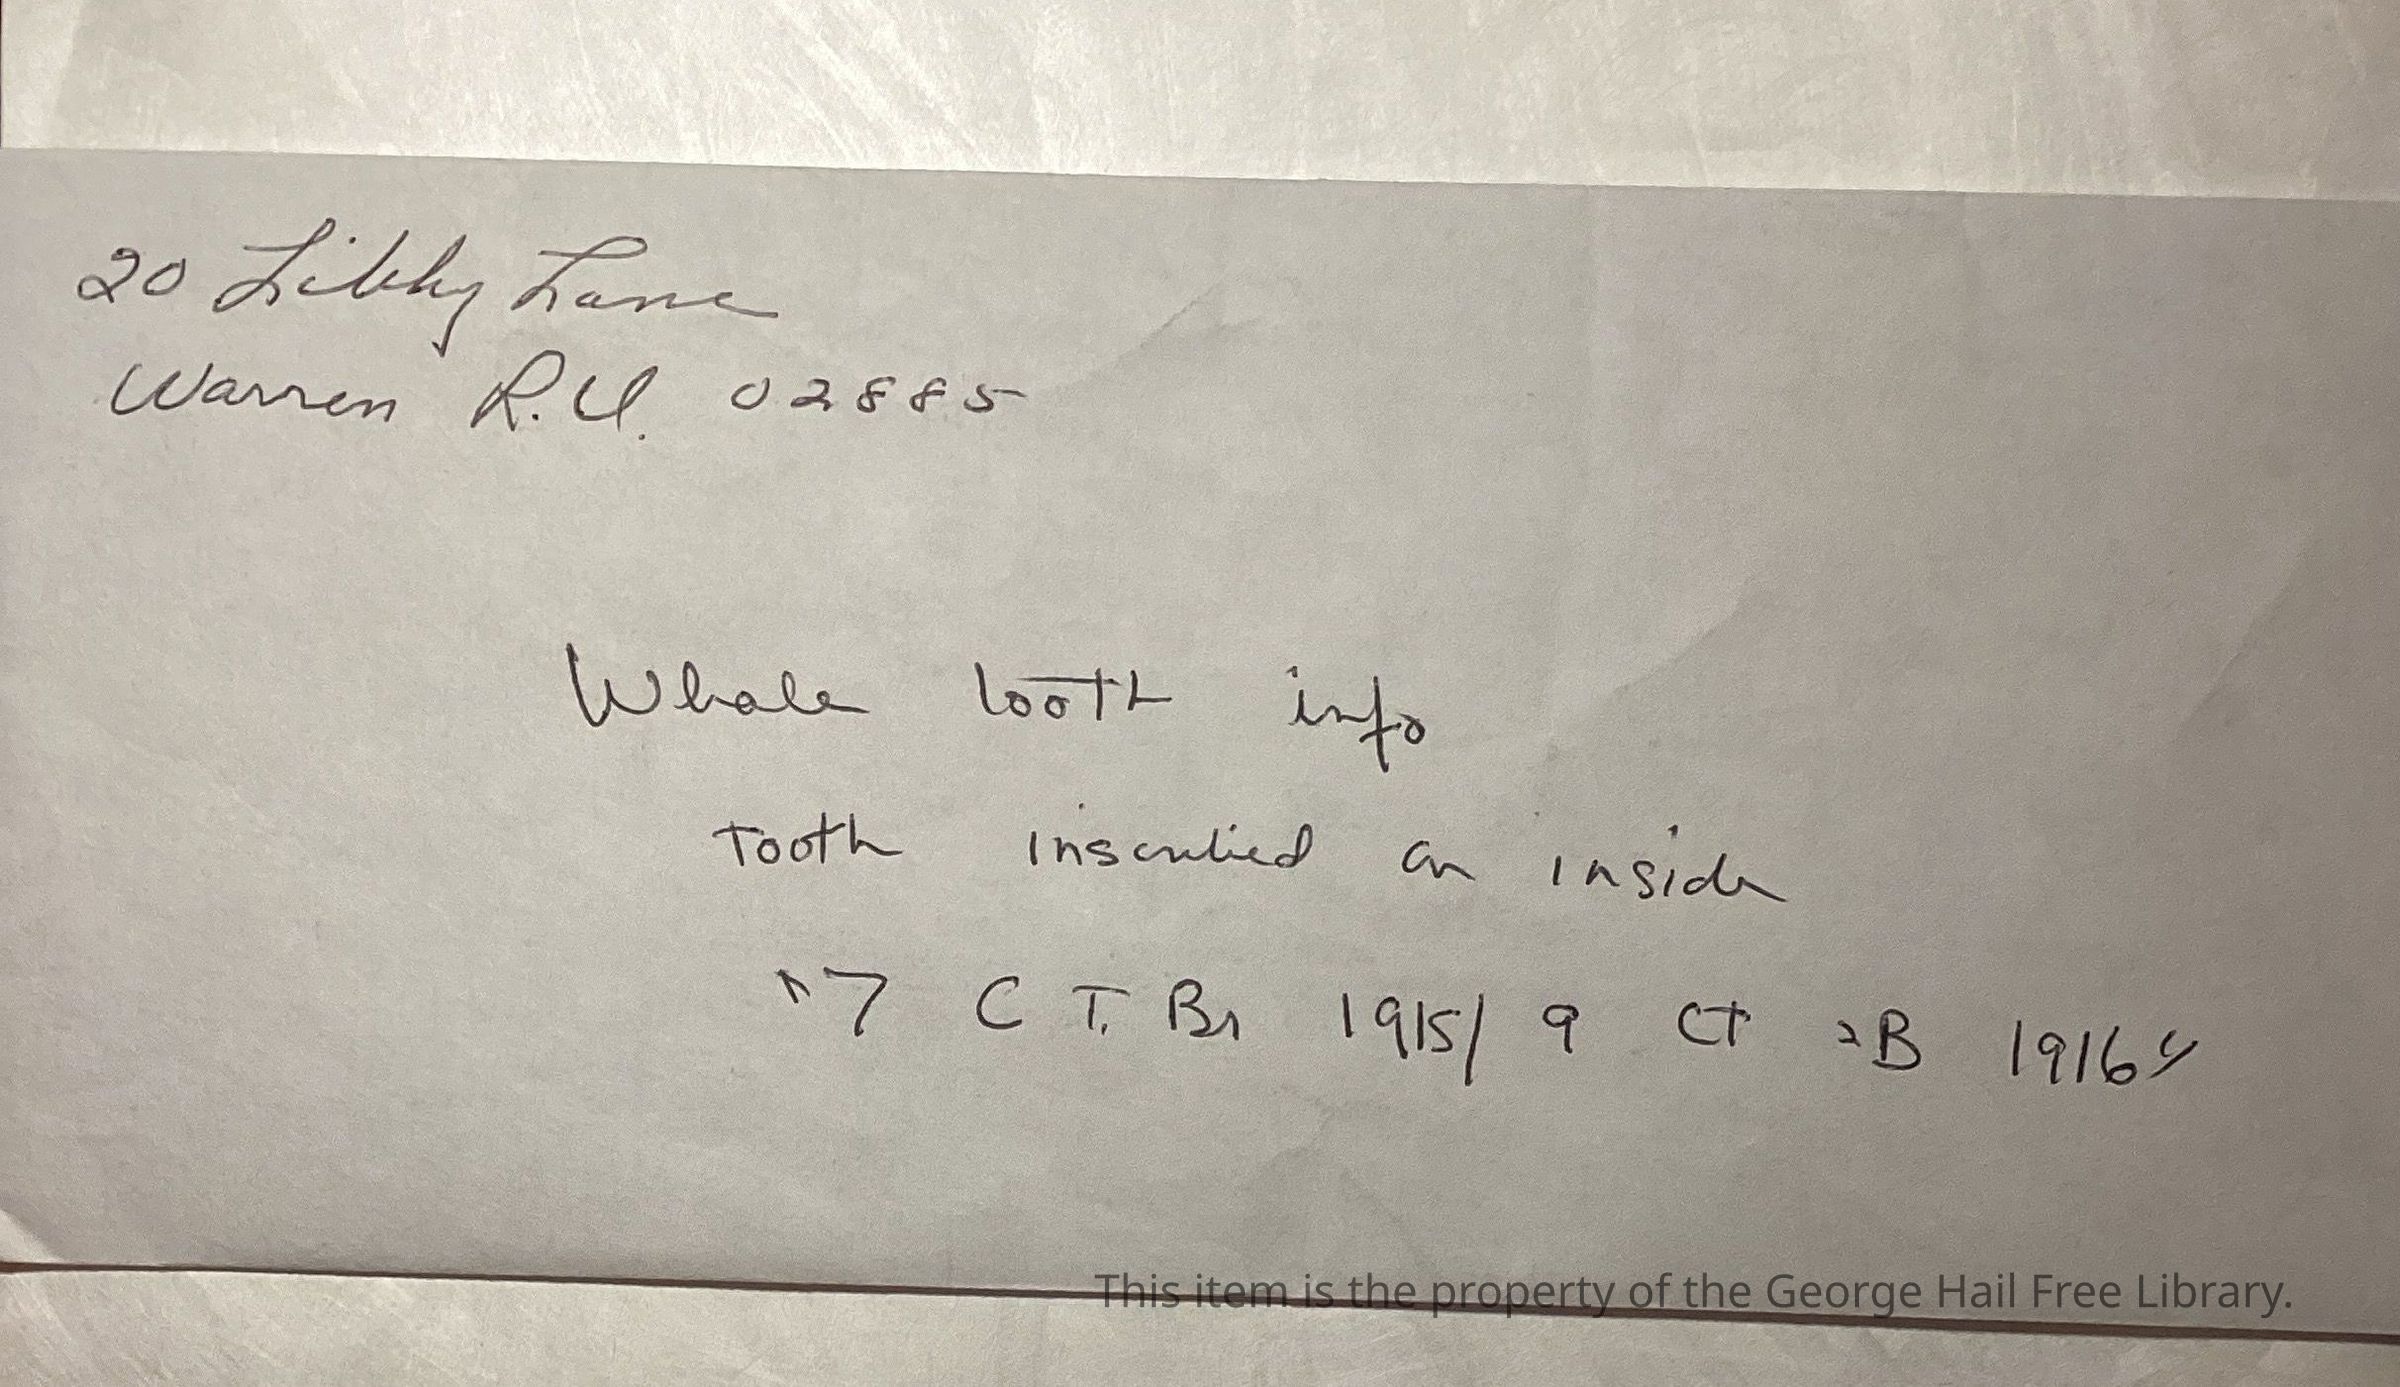 20 Libby Lane
Warren R.I. 02885
Whale tooth info
Tooth inscribed on inside
"7 C T. Br 1915/ 9 CT 2B 1916"
This item is the property of the George Hail Free Library.